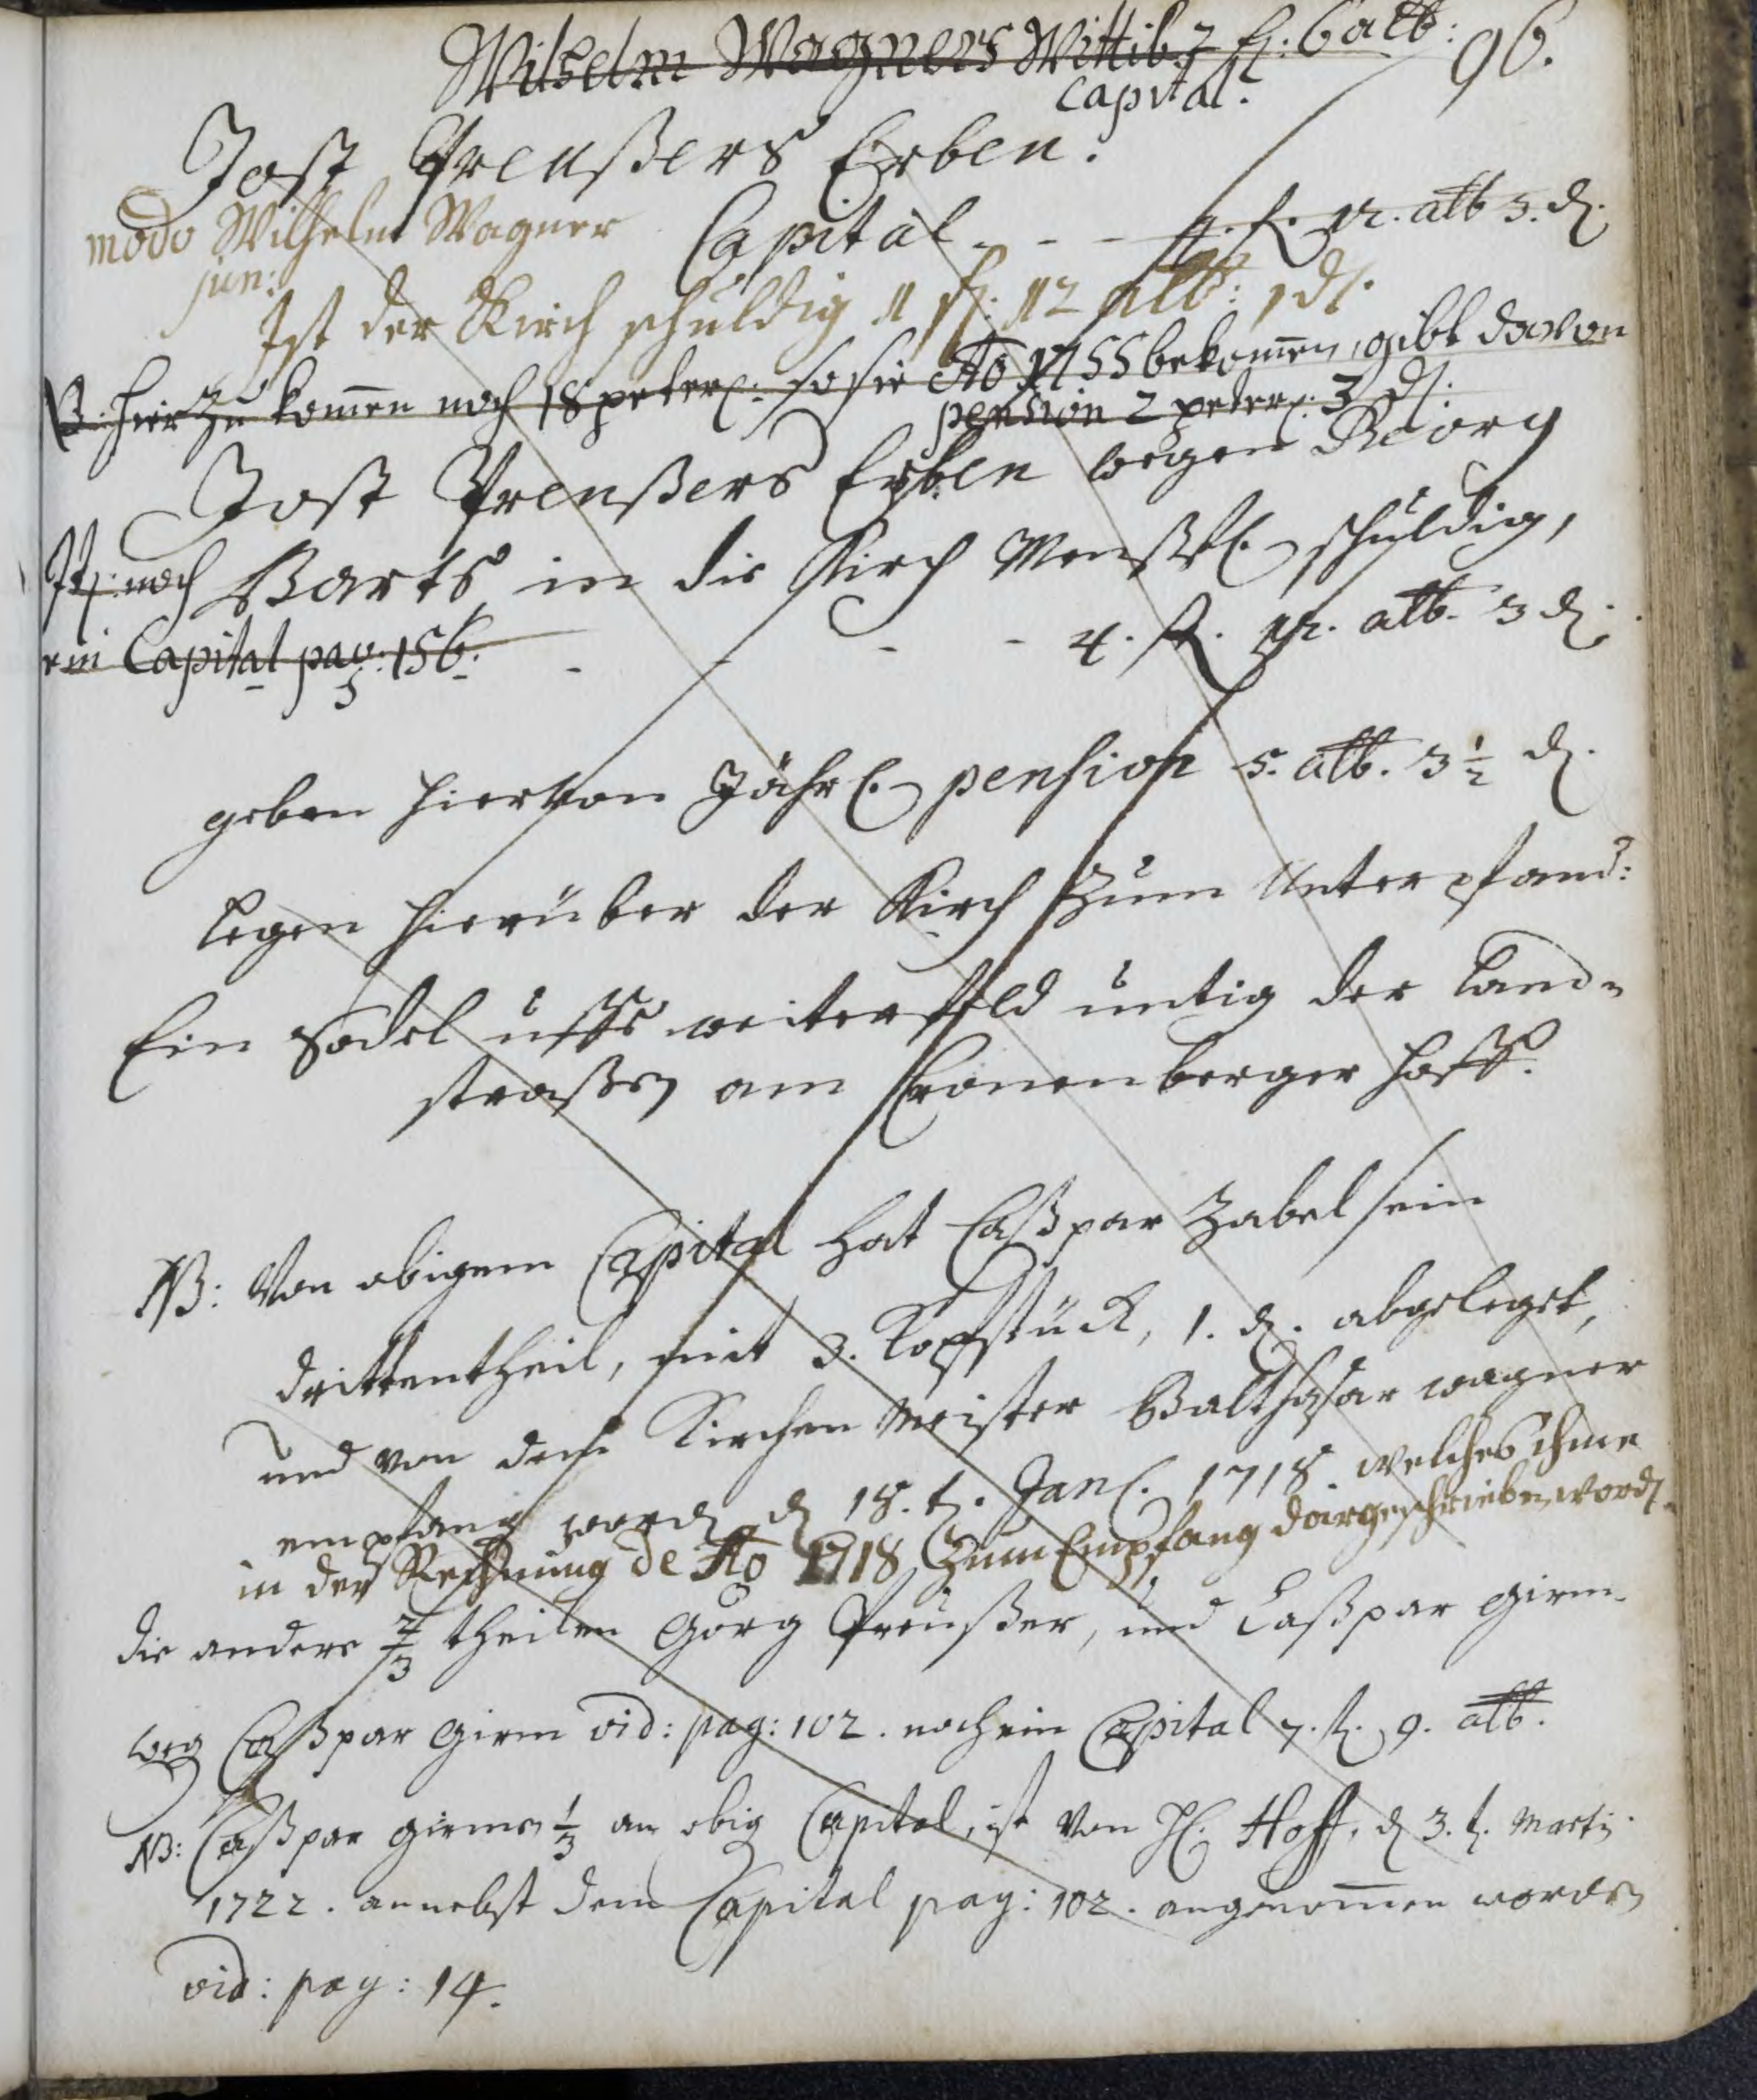 Wilhelm Wagners Wittib. 7 fl. 6 alb: 96.
Capital.
Jost Preußers Erben.
modo Wilhelm Wagner Capital - - - 4. fl. 12. alb 3. d.
jun:
Ist der Kirch schuldig 11 fl: 12 alb: 1 d.
NB: hierzu komen noch 18 peterm: so sie Ao 1755 bekomen, gibt davon
pension 2 peterm: 3 d.
Jost Preußers Erben wegen Georg
It: noch Barts in die Kirch schuldig,
ein Capital pag: 156. - - - - 4. fl. 12. alb. 3 d.
geben hiervon Jährl. pension 5. alb. 3 1/2 d.
legen hierüber der Kirch zum Unterpfand:
Ein Sodel uffs weiterfeld untig der Land-
straßen am Cronenberger hoff.
NB: Von obigem Capital hat Caßpar Zabel sein
drittentheil, mit 3. Kopfstück, 1. d. abgeleget,
und von dem Kirchen Meister Balthasar wagner
empfang word. d. 18. t. Jan. 1718. welches ihme
in der Rechnung de Ao 1718 zum Empfang dargeschrieben word.
die andere 2/3 theilen Görg Preußer, und Caßpar Girm.
weg Caßpar Girm vid: pag: 102. noch ein Capital 7. fl. 9. alb.
NB: Caßpar Girms 1/3 an obig Capital, ist von H. Hoff, d. 3. t. Martij
1722. annebst dem Capital pag: 102. angenomen worden
vid: pag: 14.